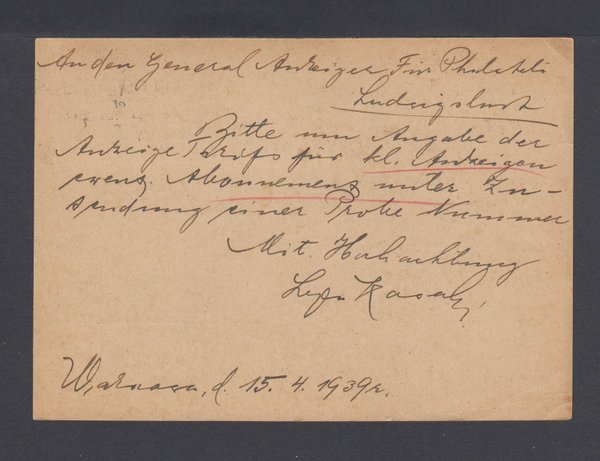 An den General Anzeiger Für Philateli
Ludwigslust
Bitte um Angabe der
Anzeige Tarifs für kl. Anzeigen
Abonnemens unter Zu-
sendung einer Probe Nummer
Mit Hochachtung
Kasak
Warszawa, d. 15. 4. 1939r.